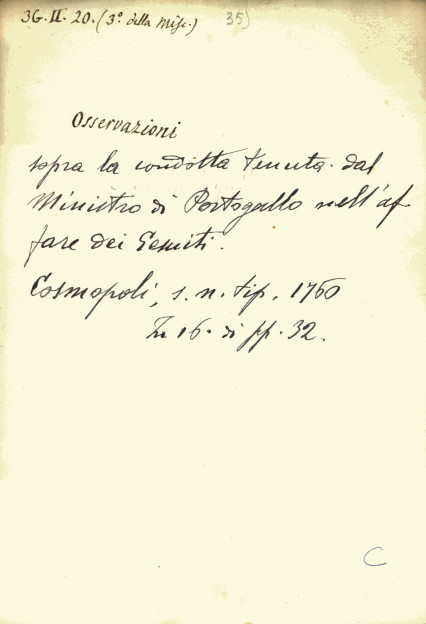 36.II.20. (3º della Misc.) 35)
Osservazioni
sopra la condotta tenuta dal
Ministro di Portogallo nell'af-
fare dei Gesuiti.
Cosmopoli, s. n. tip. 1760
In 16. di pp. 32.
C